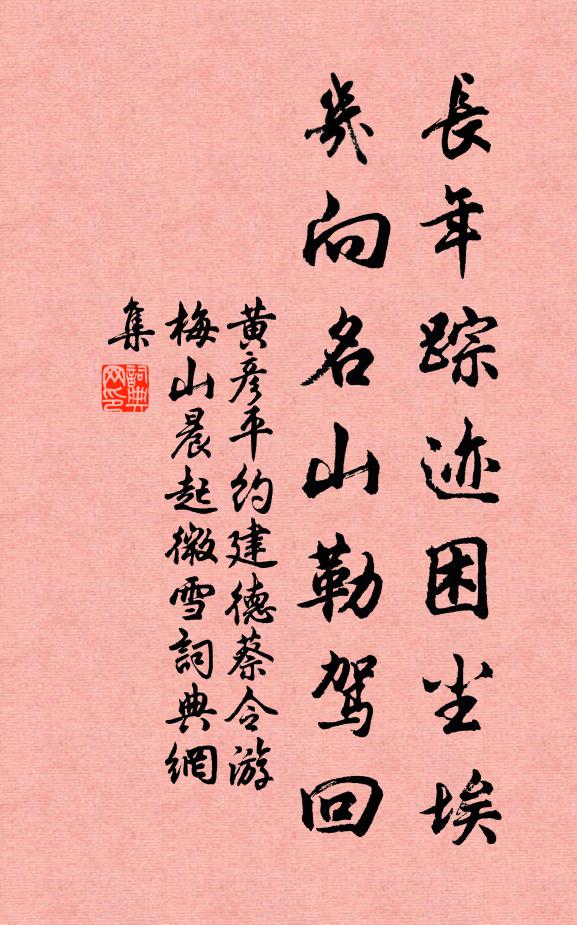 長年踪迹困尘埃
幾向名山勒駕回
黄彦平约建德蔡令游
梅山晨起微雪詞典網
集
詞典
网印